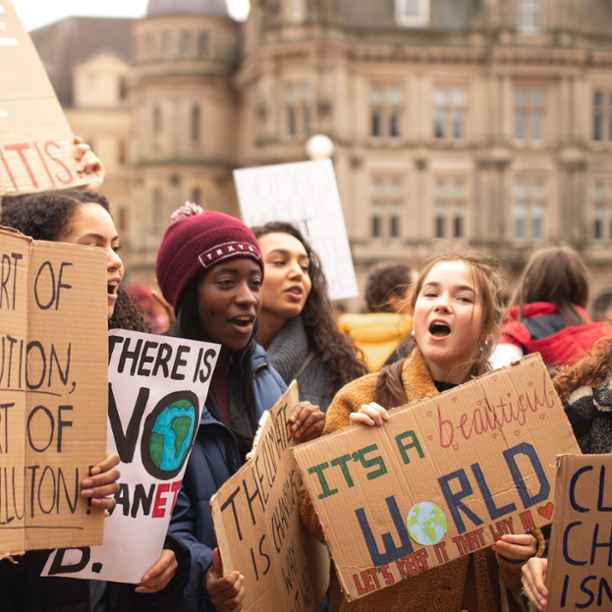 TIS
RT OF
UTION,
RT OF
LLUTION
THERE IS
NO
ANET
B.
THE CLIMATE
IS CHANGI
WHY
IT'S A beautiful
WORLD
LET'S KEEP IT THAT WAY
CL
CH
ISN